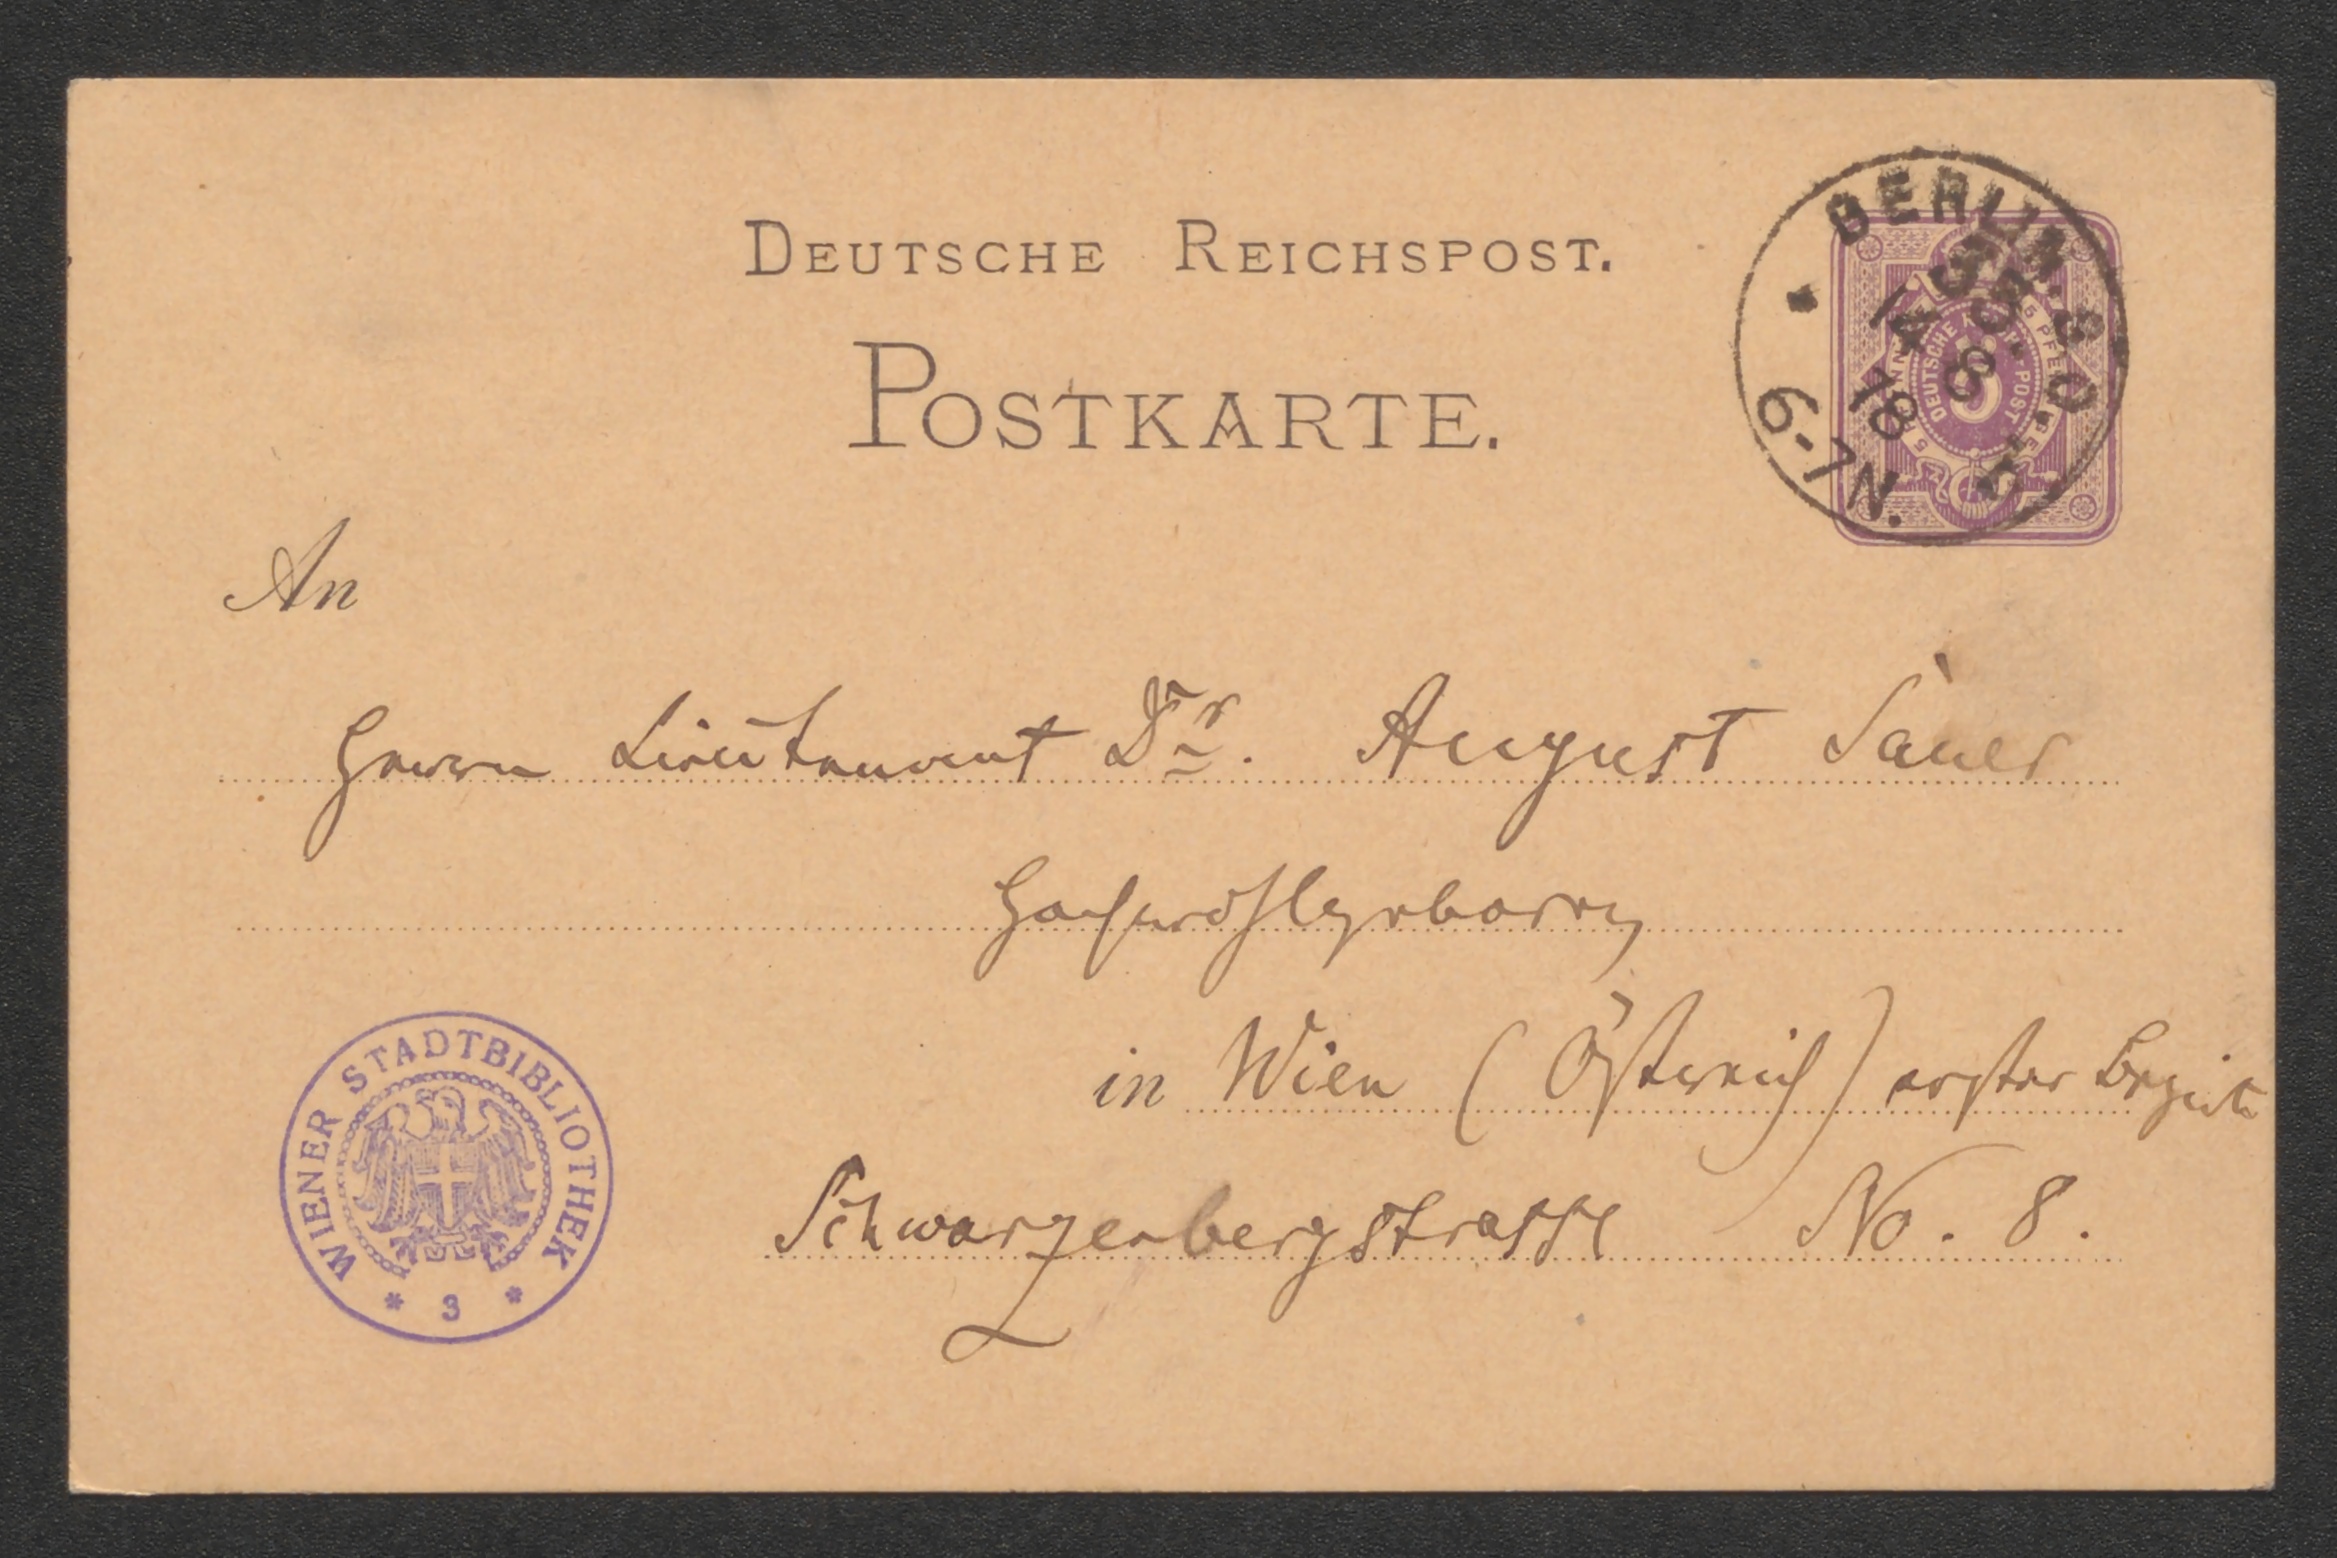 DEUTSCHE REICHSPOST.
POSTKARTE.
BERLIN. S.O.
14 8
78
6-7N.
DEUTSCHE REICHS-POST
5
An
Herrn Lieutenant Dr. August Sauer
Hochwohlgeboren
in Wien (Östreich) erster Bezirk
Schwarzenbergstrasse No. 8.
WIENER STADTBIBLIOTHEK
* 3 *